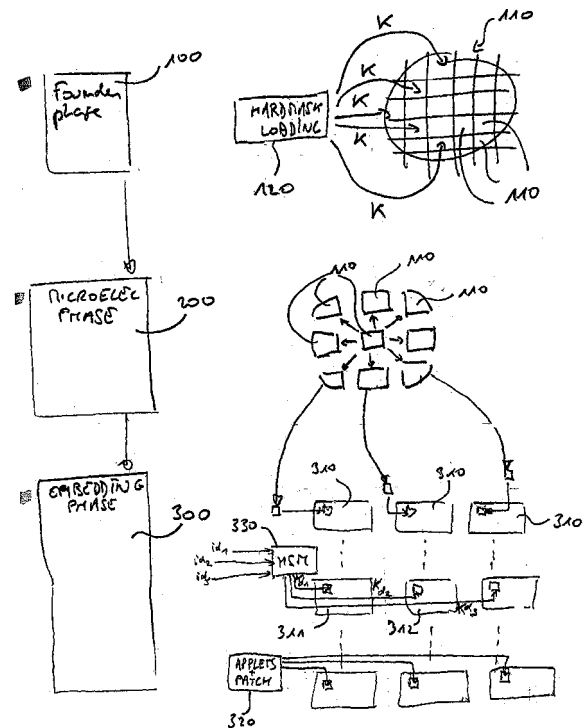 100
Founder
phase
HARDMASK
LOADING
120
K
K
K
K
K
110
110
MICROELEC
PHASE
200
110
110
110
EMBEDDING
PHASE
300
310
310
310
330
id1
id2
id3
HSM
Kd1
Kd2
Kd3
311
312
APPLETS
+
PATCH
320